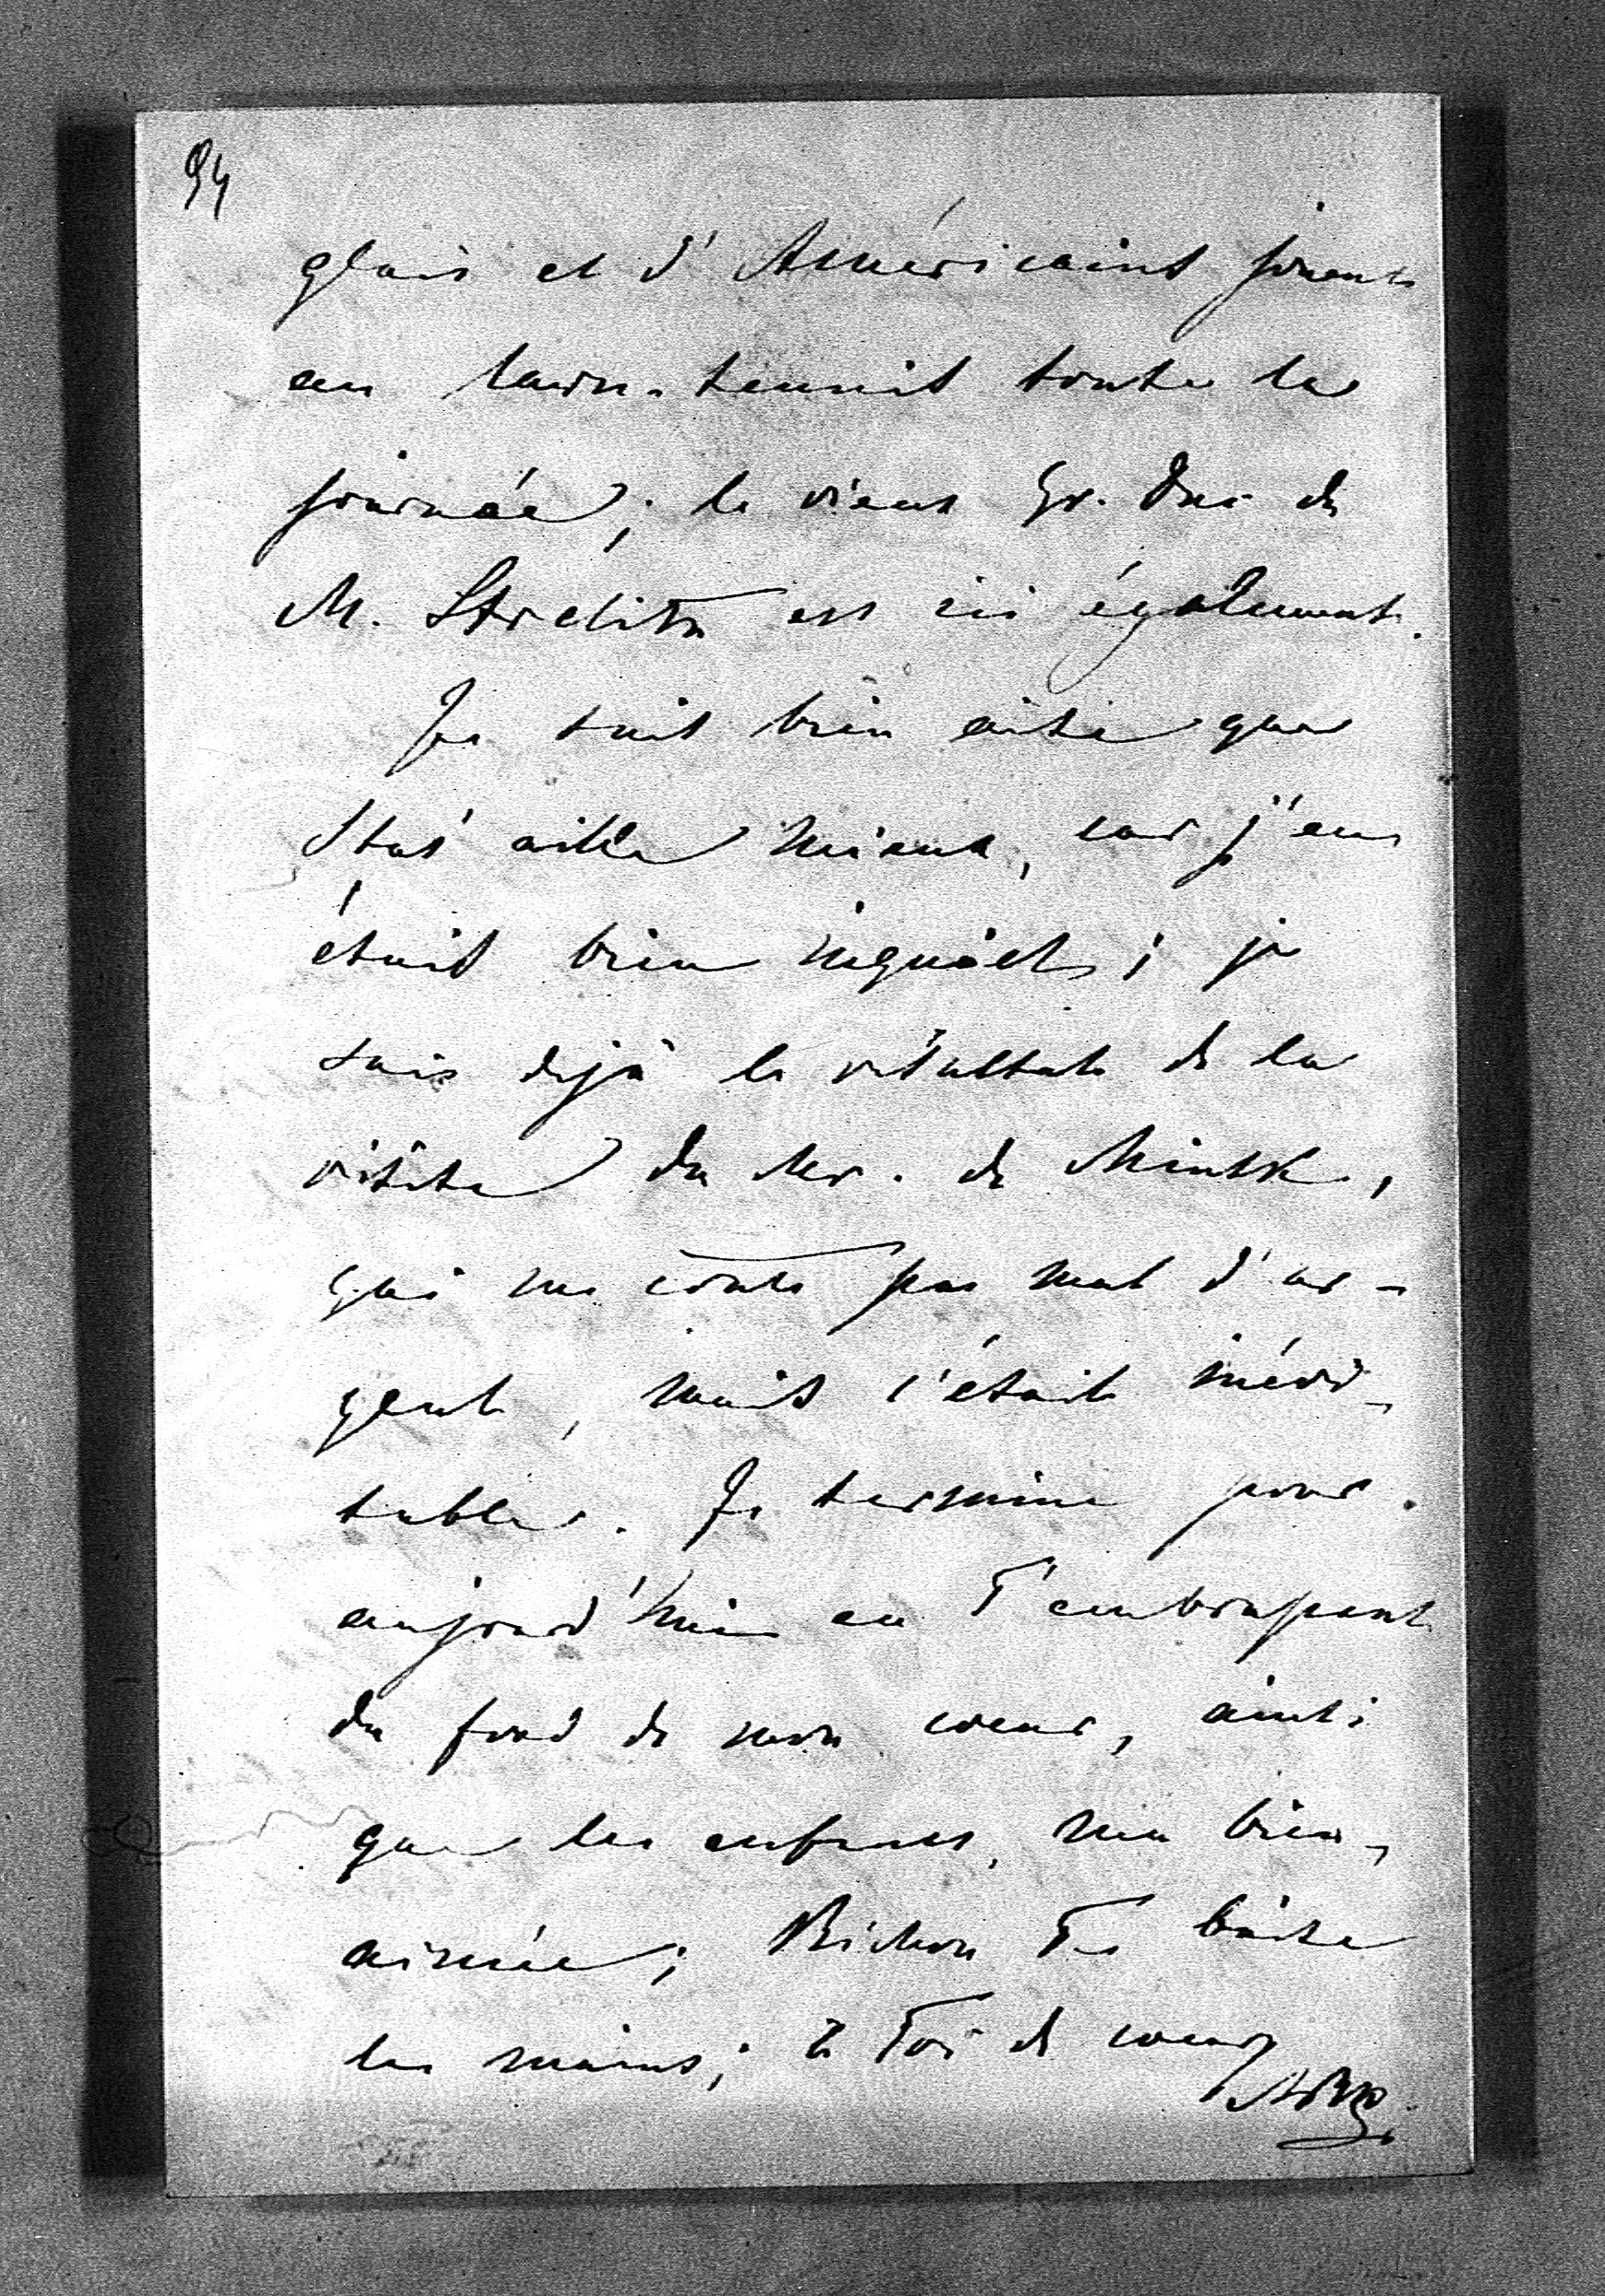 94
glais et d'Américains jouent
au lawn-tennis toute la
journée; le vieux Gr. Duc de
M. Strelitz est ici également.
Je suis bien aise que
Stas' aille mieux, car j'en
étais bien inquiet; je
sais déjà le résultat de la
visite du Mr. de Minsk,
qui me coûte pas mal d'ar-
gent, mais c'était inévi-
table. Je termine pour
aujourd'hui en T'embrassant
du fond de mon coeur, ainsi
que les enfants, ma bien-
aimée; Bichon Te baise
les mains; à Toi de coeur